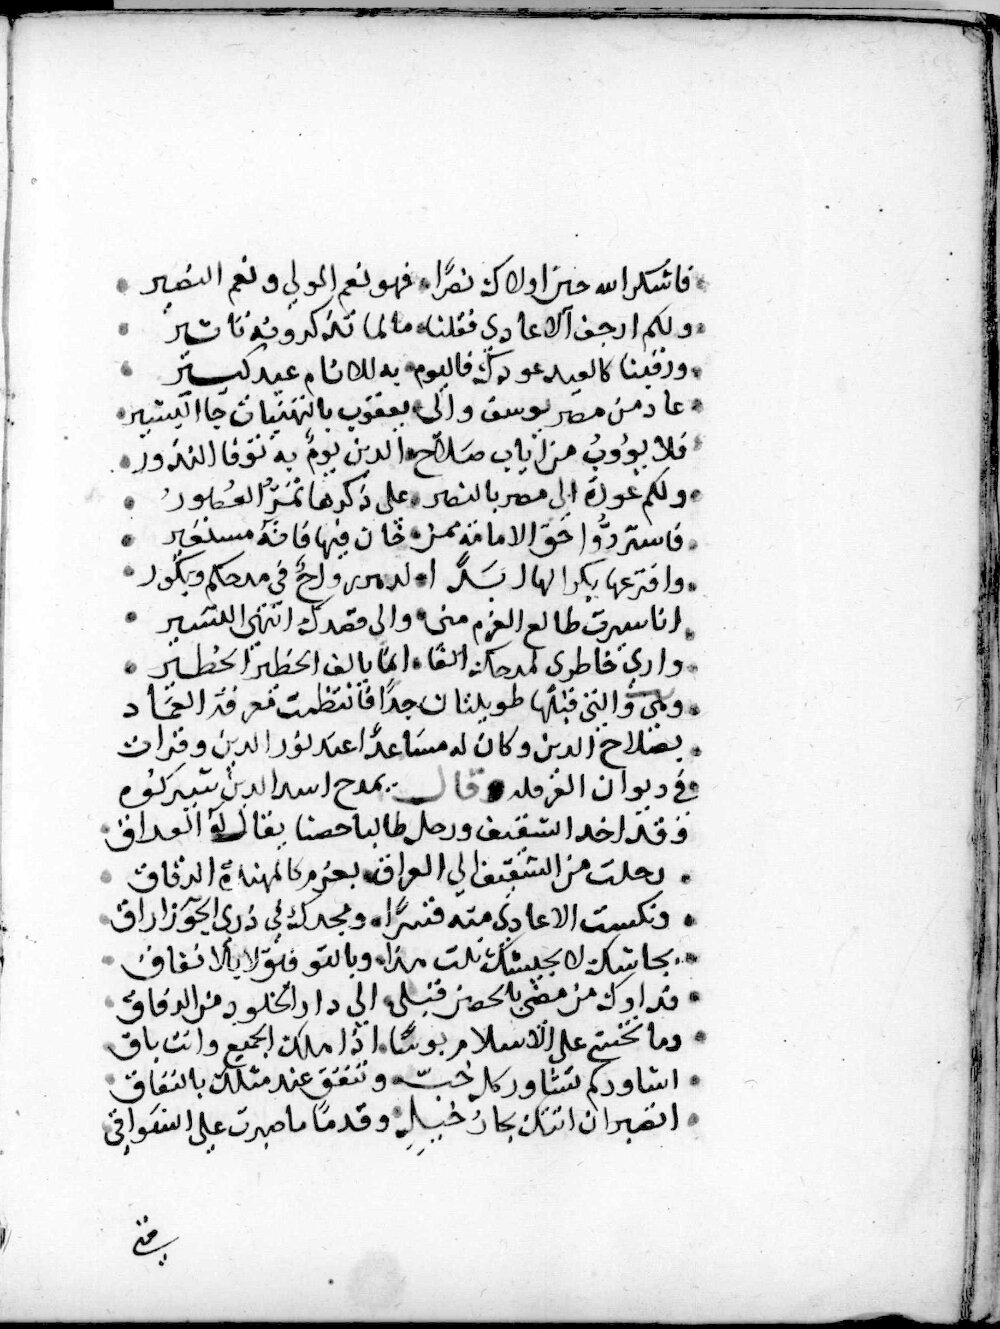 فاشكر الله حين اولاك نصرًا فهو نعم المولي ونعم النصير
ولكم ارجف الاعادي فقلنا ما لما تذكرونه تاثير
ورقبنا كالعيد عودك فاليوم به للانام عيد كبير
عاد من مصر يوسف والى يعقوب بالتهنيات جا البشير
فلا يوؤب من اياب صلاح الدين يوم به توفا النذور
ولكم عودة الى مصر بالنصر على ذكرها تمر العصور
فاستردوا حق الامانة ممن خان فيها فانه مستغير
وافترعها بكرا لها الدهر رواح في مدحكم وبكور
انا سيرت طالع العزم مني والى قصدك انتهى التسيير
واري خاطري لمدحك الفا انما يالف الخطير الخطير
وهي والتي قبلها طويلتان جدًا فانتظمت معرفة العماد
بصلاح الدين وكان له مساعدًا عند نور الدين وقرات
في ديوان العرقله وقال يمدح اسد الدين شيركوه
وقد اخذ الشقيف ورحل طالبا حصنا يقال له العراق
رحلت من الشقيف الي العراق بعزم كالمهندة الرقاق
ونكست الاعادي منه قسرًا ومجدك في ذري الجوزا راق
بجاشك لا بجيشك نلت هذا وبالتوفيق لا بالاتفاق
فداوك من مضى بالحصن قبلي الي دار الخلود من الرفاق
وما تخشي على الاسلام بوسًا اذا هلك الجميع وانت باق
اشاوركم تشاور كل خب وتنفق عند مثلك بالنفاق
اتصبر ان اتتك بحار خيل وقدمًا ما صبرت على السواقي